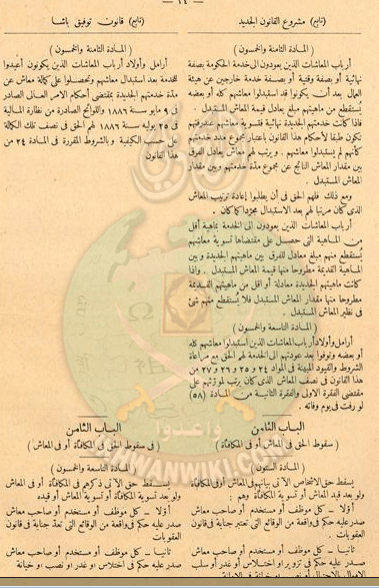 — ١٤ —
(تابع) مشروع القانون الجديد
( المادة الثامنة والخمسون )
أرباب المعاشات الذين يعودون الى خدمة الحكومة بصفة
نهائية أو بصفة وقتية أو بصفة خدمة خارجين عن هيئة
العمال بعد أن يكونوا قد استبدلوا معاشهم كله أو بعضه
يُستقطع من ماهيتهم مبلغ يعادل قيمة المعاش المستبدل .
فاذا كانت خدمتهم الجديدة نهائية فتسوية معاشهم
تكون طبقا لأحكام هذا القانون باعتبار مجموع مدد خدمتهم
كأنهم لم يستبدلوا معاشهم . ويرتب لهم معاش يعادل الفرق
بين مقدار المعاش الناتج عن مجموع مدة خدمتهم وبين مقدار
المعاش المستبدل .
ومع ذلك فلهم الحق فى أن يطلبوا إعادة ترتيب المعاش
الذى كان مرتبا لهم بعد الاستبدال مجردا كما كان .
أرباب المعاشات الذين يعودون الى الخدمة بماهية أقل
من الماهية التى حصل على مقتضاها تسوية معاشهم
يُستقطع منهم مبلغ معادل للفرق بين ماهيتهم الجديدة وبين
الماهية القديمة مطروحا منها قيمة المعاش المستبدل . واذا
كانت ماهيتهم الجديدة معادلة أو اقل من ماهيتهم القديمة
مطروحا منها مقدار المعاش المستبدل فلا يُستقطع منهم شئ
فى نظير المعاش المستبدل .
( المادة التاسعة والخمسون )
أرامل وأولاد أرباب المعاشات الذين استبدلوا معاشهم كله
أو بعضه وتوفوا بعد عودتهم الى الخدمة لهم الحق مع مراعاة
الشروط والقيود المبينة فى المواد ٢٤ و ٢٥ و ٢٦ و ٢٧ من
هذا القانون فى نصف المعاش الذى كان يرتب لمورثهم على
مقتضى الفقرة الاولى والفقرة الثانية من المادة (٥٨)
لو رفت فى يوم وفاته .
الباب الثامن
( سقوط الحق فى المعاش أو فى المكافأة )
( المادة الستون )
يسقط حق الأشخاص الآتى بيانهم فى المعاش أو فى المكافأة
ولو بعد قيد المعاش أو تسوية المكافأة وهم :
أوّلا - كل موظف أو مستخدم أو صاحب معاش
صدر عليه حكم فى واقعة من الوقائع التى تعتبر جناية فى قانون
العقوبات .
ثانيا - كل موظف أو مستخدم أو صاحب معاش
صدر عليه حكم فى تزوير أو اختلاس أو غدر أو سلب
(تابع) قانون توفيق باشا
( المادة الثامنة والخمسون )
أرامل وأولاد أرباب المعاشات الذين يكونون أعيدوا
للخدمة بعد استبدال معاشهم وتحصلوا على تكملة معاش عن
مدة خدمتهم الجديدة بمقتضى أحكام الامر العالى الصادر
فى ٩ مايو سنة ١٨٨٦ واللوائح الصادرة من نظارة المالية
فى ٢٥ يوليه سنة ١٨٨٦ لهم الحق فى نصف تلك التكملة
على حسب الكيفية وبالشروط المقررة فى المادة ٢٤ من
هذا القانون
الباب الثامن
( فى سقوط الحق فى المكافأة أو فى المعاش )
( المادة التاسعة والخمسون )
يسقط حق الآتى ذكرهم فى المكافأة أو فى المعاش
ولو بعد تسوية المكافأة أو تسوية المعاش أو قيده
أوّلا - كل موظف أو مستخدم أو صاحب معاش
صدر عليه حكم فى واقعة من الوقائع التى تعدّ جناية فى قانون
العقوبات
ثانيا - كل موظف أو مستخدم أو صاحب معاش
صدر عليه حكم فى اختلاس أو غدر أو نصب أو خيانة
وأعدوا
IKHWANWIKI.COM